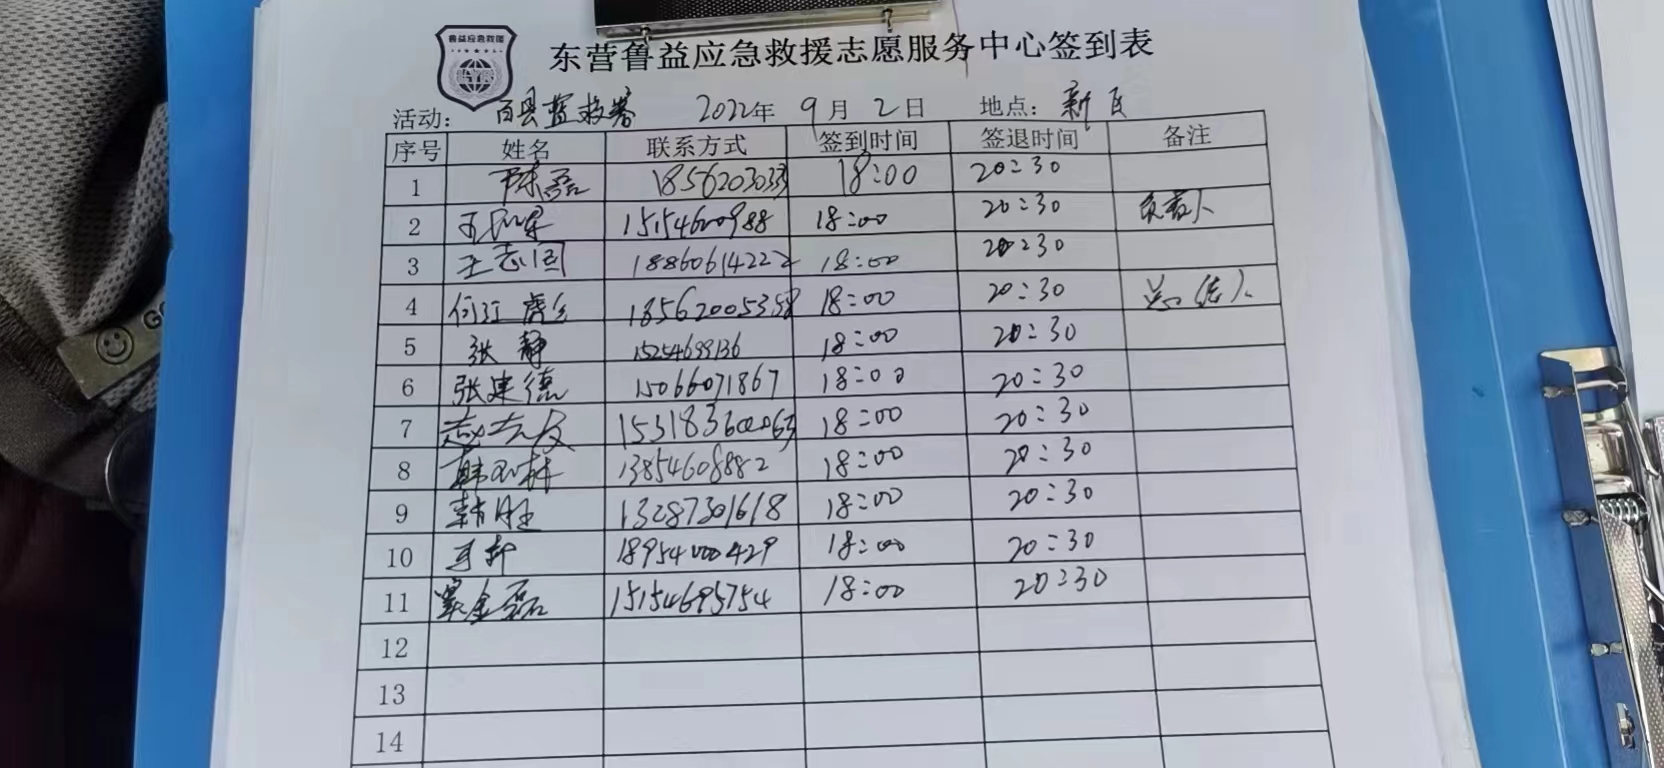 鲁益应急救援
东营鲁益应急救援志愿服务中心签到表
活动: 百县蓝救署 2022年 9月 2日 地点: 新
序号 姓名 联系方式 签到时间 签退时间 备注
1 陈磊 1856203033 18:00 20:30
2 15154600988 18:00 20:30 负责人
3 王志国 18860614222 18:00 20:30
4 18562005338 18:00 20:30 总结人
5 张静 15254699136 18:00 20:30
6 张建德 15066071867 18:00 20:30
7 18:00 20:30
8 13854608882 18:00 20:30
9 韩胜 13287301618 18:00 20:30
10 18954000429 18:00 20:30
11 窦金磊 15154695754 18:00 20:30
12
13
14